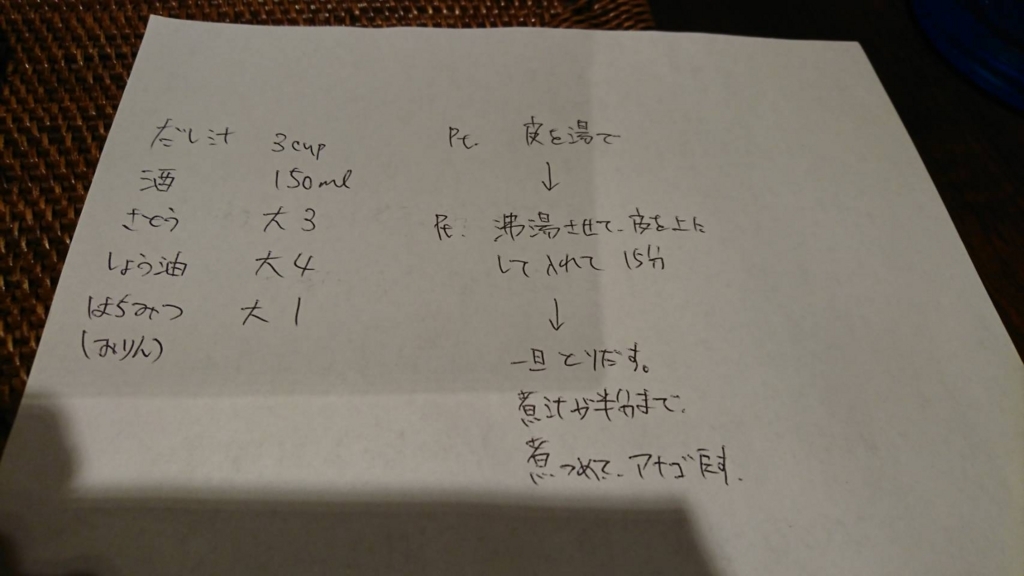 だし汁 3cup
酒 150ml
さとう 大3
しょう油 大4
はちみつ 大1
(みりん)
Pt. 皮を湯で
↓
Pt. 沸湯させて、皮を上に
して入れて 15分
↓
一旦とりだす。
煮汁が半分まで、
煮つめて、アナゴ戻す.